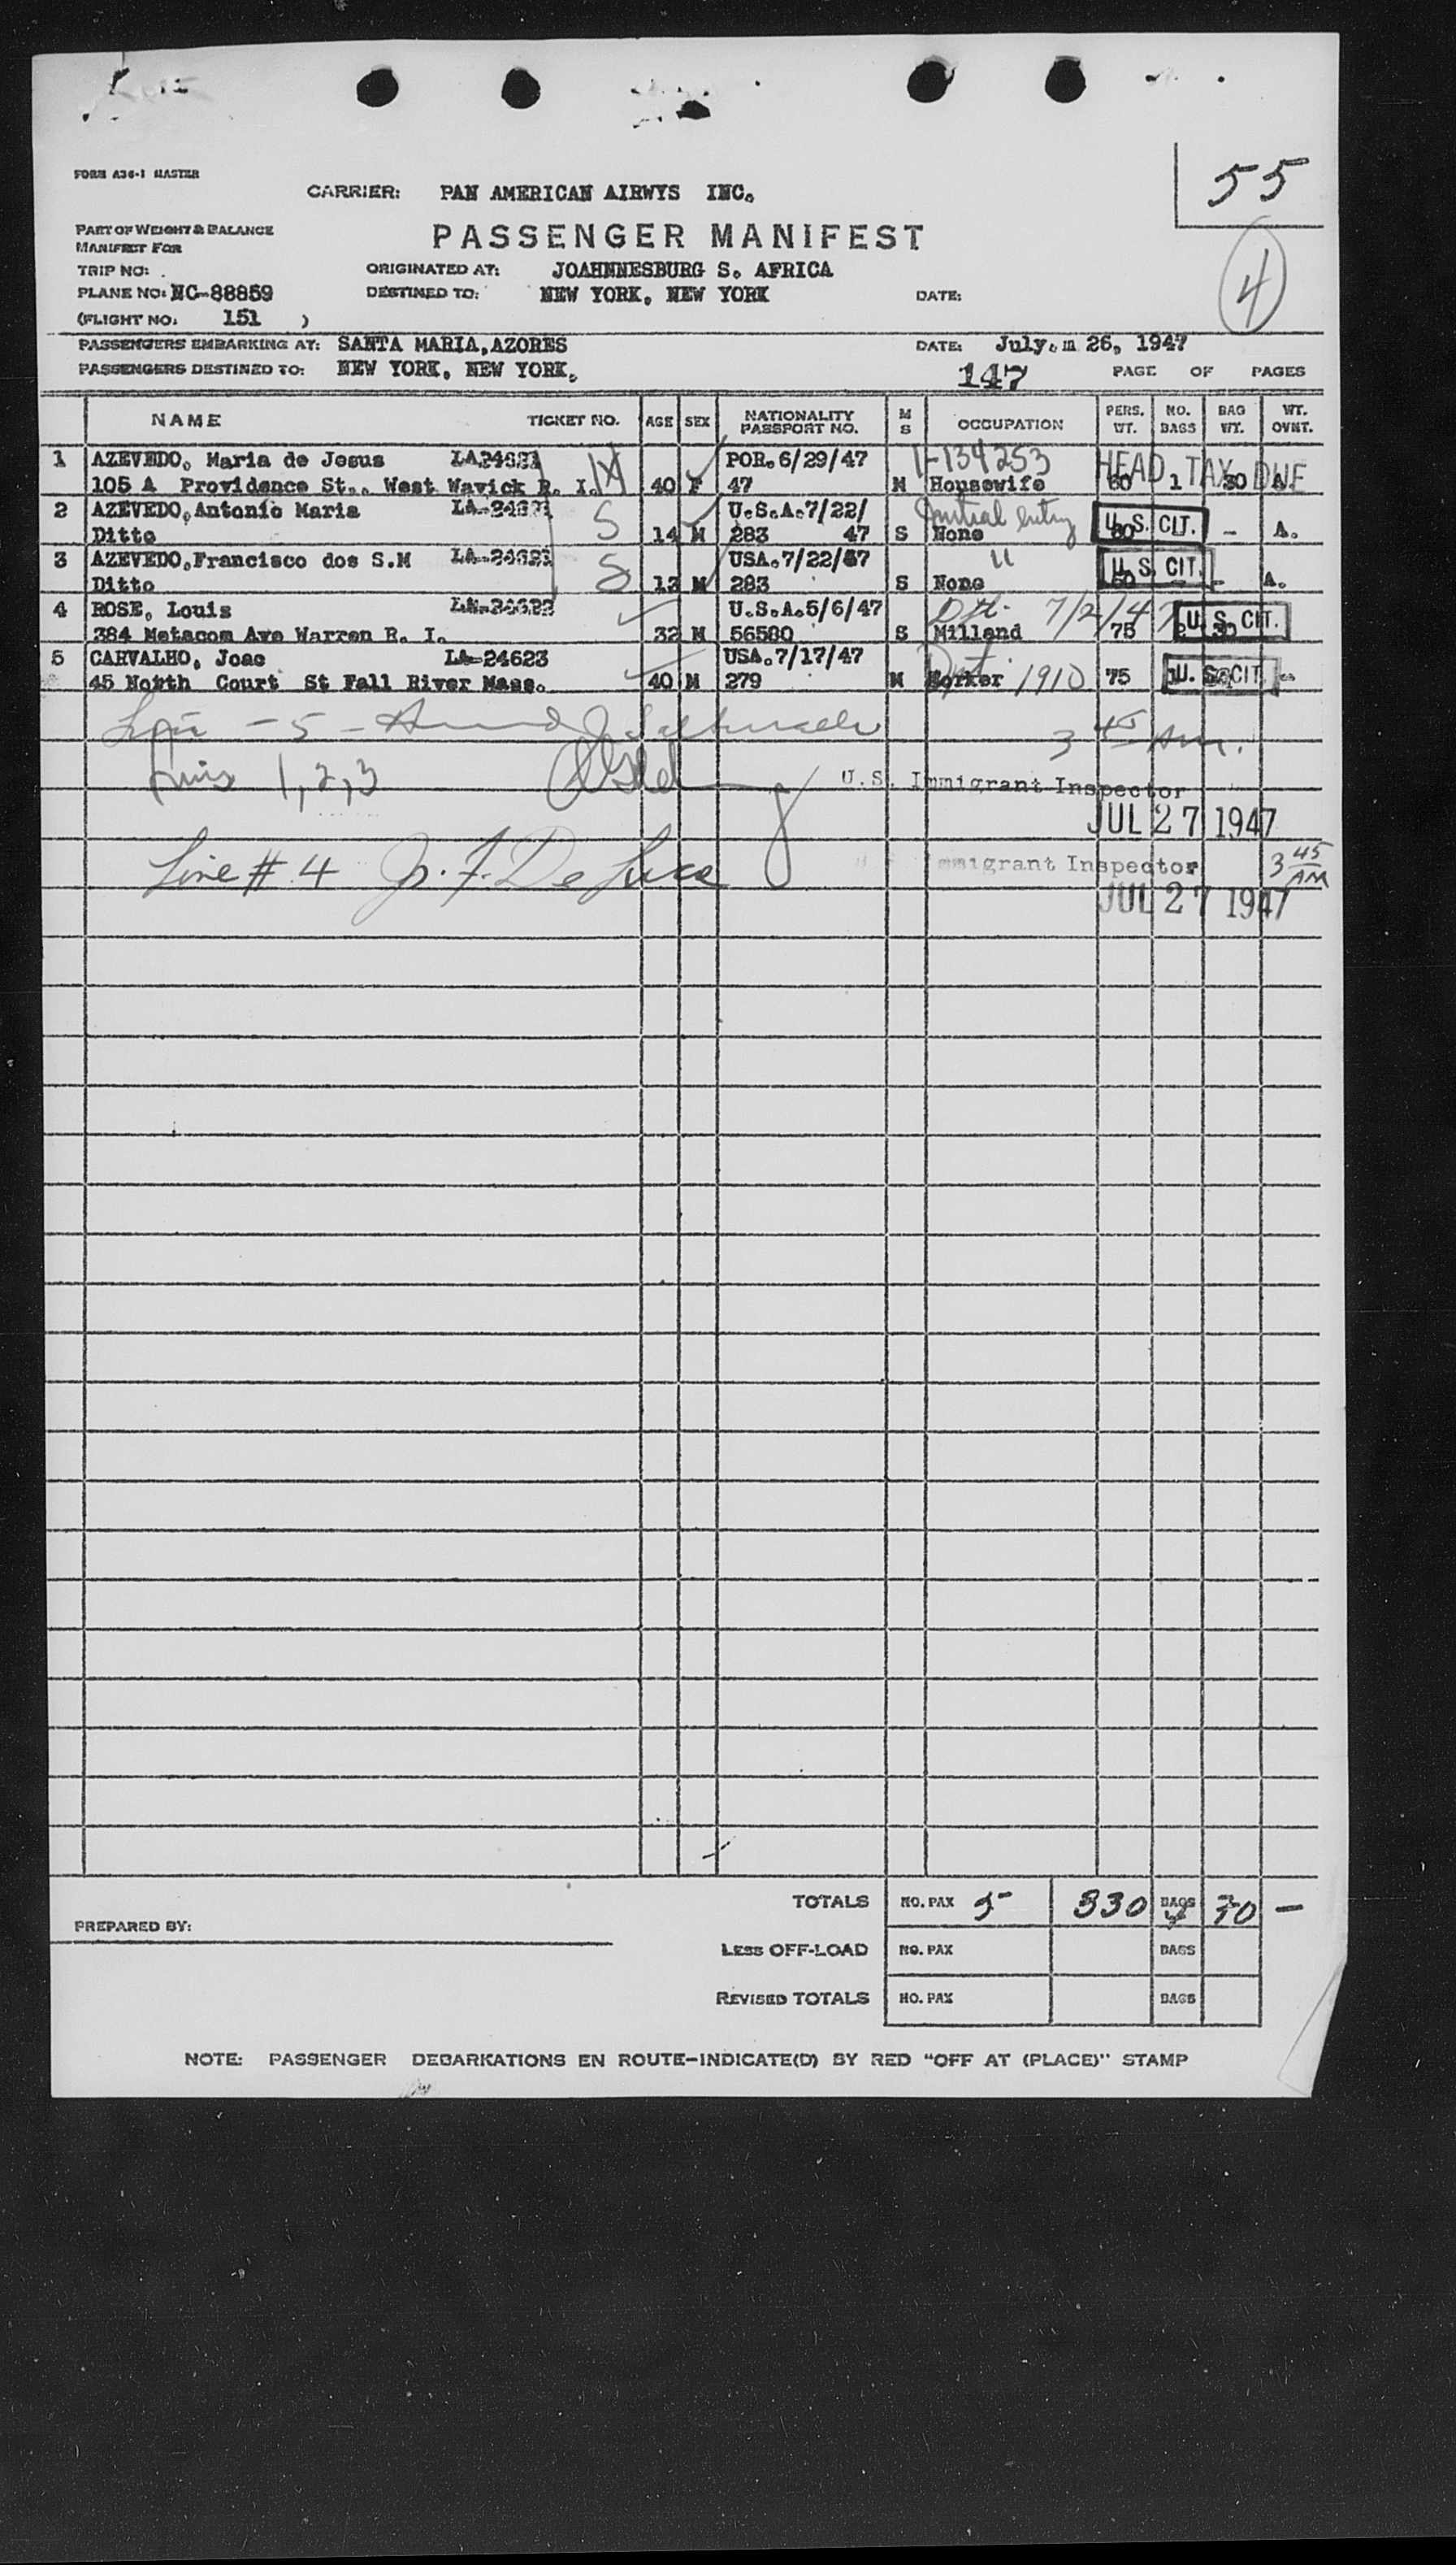 FORM A36-1 MASTER
CARRIER: PAN AMERICAN AIRWYS INC.
55
PART OF WEIGHT & BALANCE
MANIFEST FOR
PASSENGER MANIFEST
4
TRIP NO:
ORIGINATED AT: JOAHNNESBURG S. AFRICA
PLANE NO: NC-88859
DESTINED TO: NEW YORK, NEW YORK
DATE:
(FLIGHT NO. 151 )
PASSENGERS EMBARKING AT: SANTA MARIA, AZORES
DATE: July, 26, 1947
PASSENGERS DESTINED TO: NEW YORK, NEW YORK.
147
PAGE OF PAGES
NAME TICKET NO. AGE SEX NATIONALITY PASSPORT NO. M S OCCUPATION PERS. WT. NO. BAGS BAG WT. WT. OVNT.
1 AZEVEDO, Maria de Jesus LA24621 POR. 6/29/47 V-134253 HEAD TAX DUE
105 A Providence St., West Wavick R. I. 40 F 47 M Housewife 60 1 30
2 AZEVEDO, Antonio Maria LA-24621 S U.S.A. 7/22/ initial entry U.S. CIT.
Ditto 14 M 283 47 S None 60 - A.
3 AZEVEDO, Francisco dos S.M LA-24621 S USA. 7/22/47 " U.S. CIT.
Ditto 13 M 283 S None 60 - - A.
4 ROSE, Louis LA-24622 U.S.A. 5/6/47 7/2/47 U.S. CIT.
384 Metacom Ave Warren R. I. 32 M 56580 S Milland 75
5 CARVALHO, Joao LA-24623 USA. 7/17/47
45 North Court St Fall River Mass. 40 M 279 M Worker 1910 75 U.S. CIT.
- 5 -
3 45 Am.
1, 2, 3
U.S. Immigrant Inspector
JUL 27 1947
Line # 4 J. F. De Luca
Immigrant Inspector 3 45 AM
JUL 27 1947
TOTALS NO. PAX 5 330 BAGS 70 -
PREPARED BY:
LESS OFF-LOAD NO. PAX BAGS
REVISED TOTALS NO. PAX BAGS
NOTE: PASSENGER DEBARKATIONS EN ROUTE-INDICATE(D) BY RED "OFF AT (PLACE)" STAMP